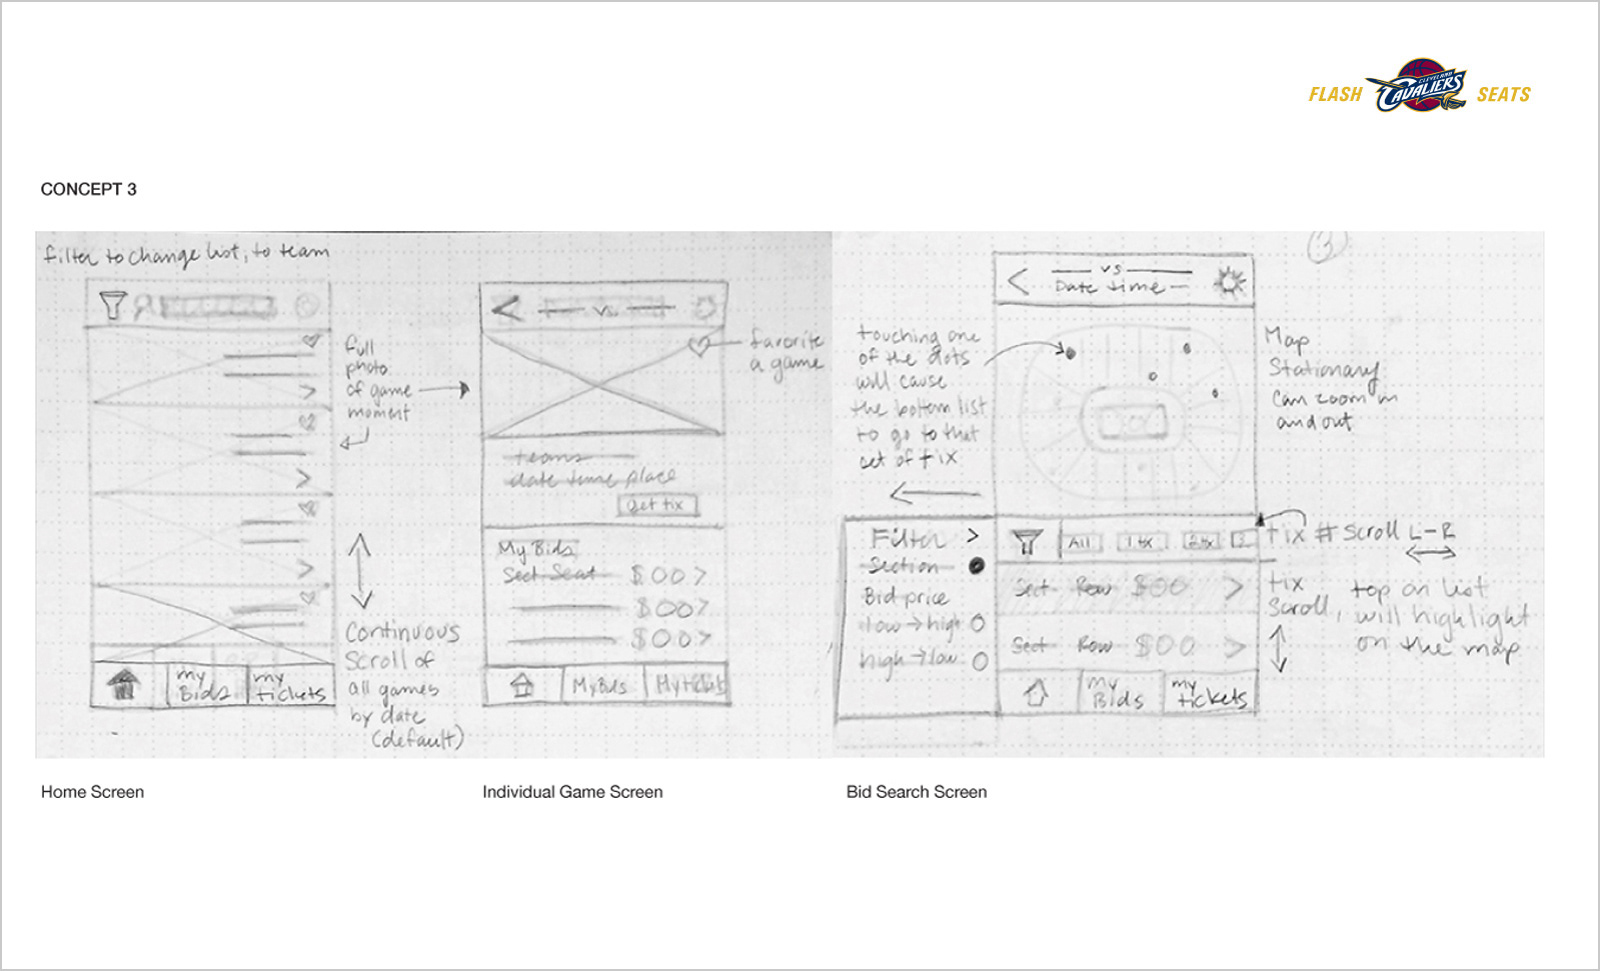 FLASH
CLEVELAND
CAVALIERS
SEATS
CONCEPT 3
filter to change list, to team
my
Bids
my
tickets
full
photo
of game
moment
Continuous
Scroll of
all games
by date
(default)
vs.
favorite
a game
teams
date time place
get tix
My Bids
Sect Seat $00>
$00>
$00>
My Bids
My tickets
3
touching one
of the dots
will cause
the bottom list
to go to that
set of tix
vs
Date time
Map
Stationary
can zoom in
and out
Filter >
Section
Bid price
low → high
high → low
All
1 tx
2 tx
3
tix # Scroll L-R
Sect Row $00 >
Sect Row $00 >
tix
Scroll,
top on list
will highlight
on the map
my
Bids
my
tickets
Home Screen
Individual Game Screen
Bid Search Screen